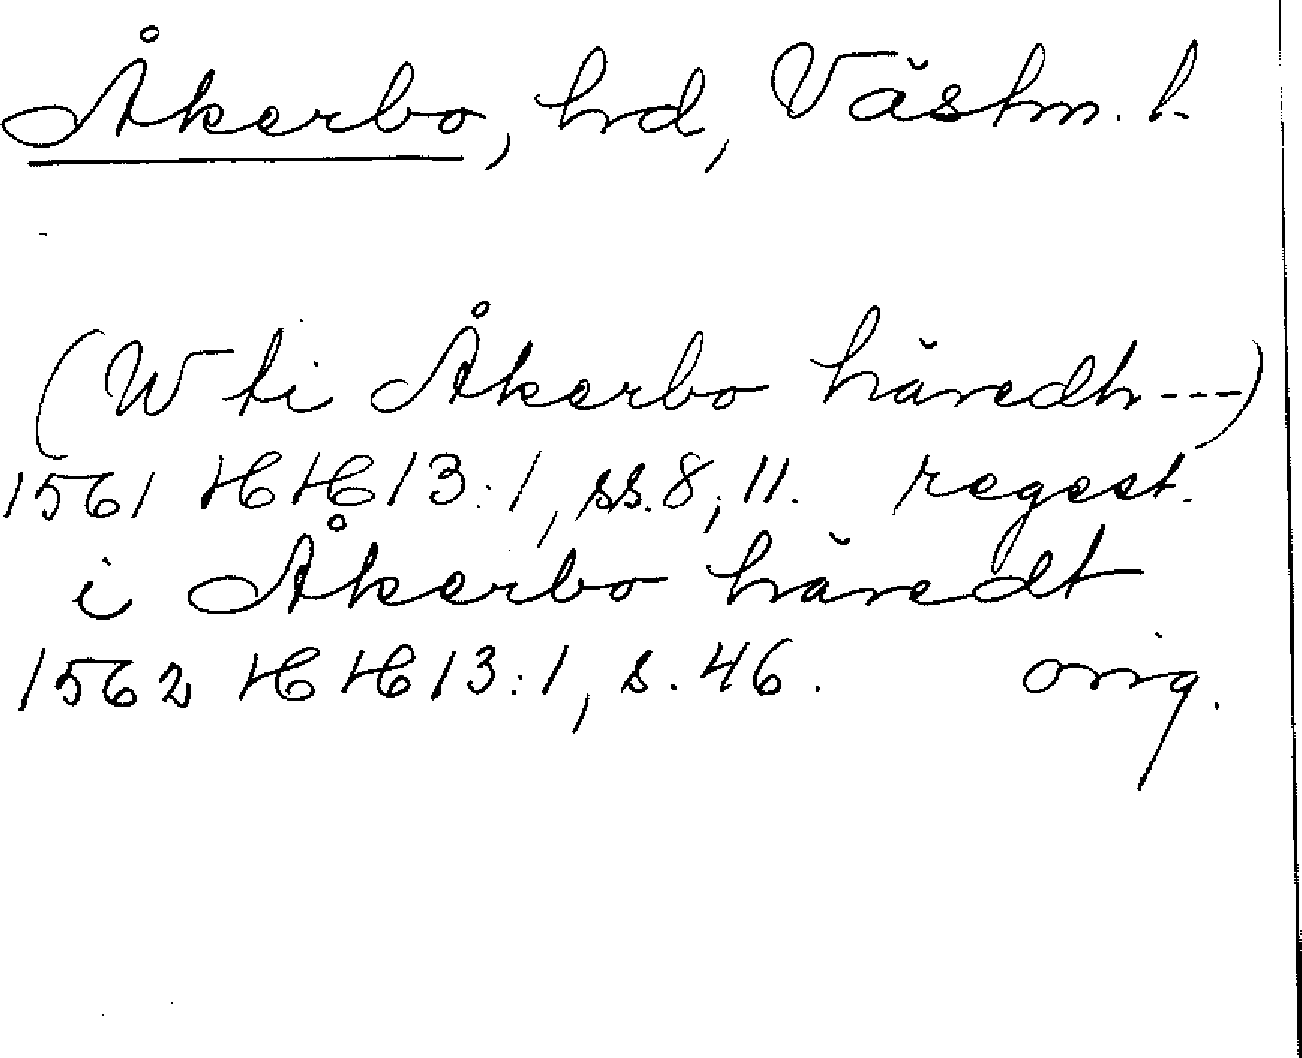 Åkerbo, hd, Västm. l.
(W ti Åkerbo häredh---)
1561 HH 13:1, ss. 8, 11. regest.
i Åkerbo häredt
1562 HH 13:1, s. 46. orig.